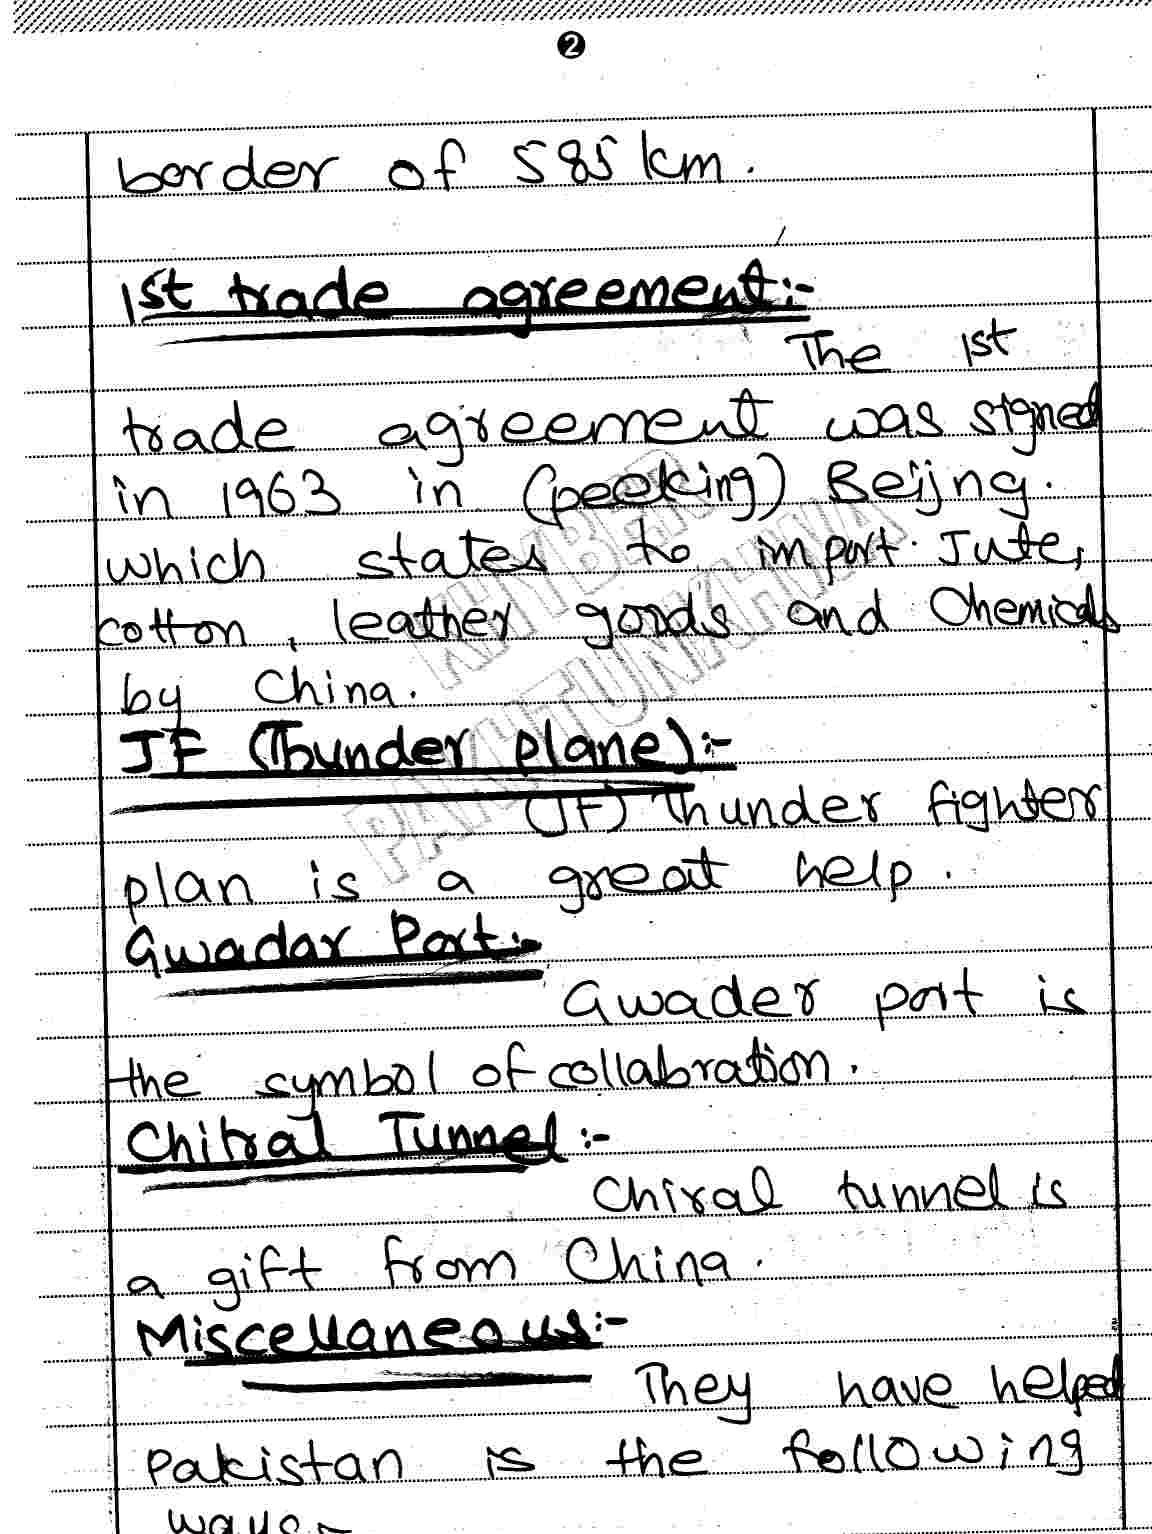 2
border of 585 km.
1st trade agreement:-
The 1st
trade agreement was signed
in 1963 in (peeking) Beijng.
which states to import Jute,
cotton, leather goods and Chemicals
by China.
JF (Thunder plane):-
(JF) Thunder fighter
plan is a great help.
Gwadar Port:-
Gwader port is
the symbol of collabration.
Chitral Tunnel:-
Chiral tunnel is
a gift from China.
Miscellaneous:-
They have helped
Pakistan is the following
ways:-
KHYBER
PAKHTUNKHWA